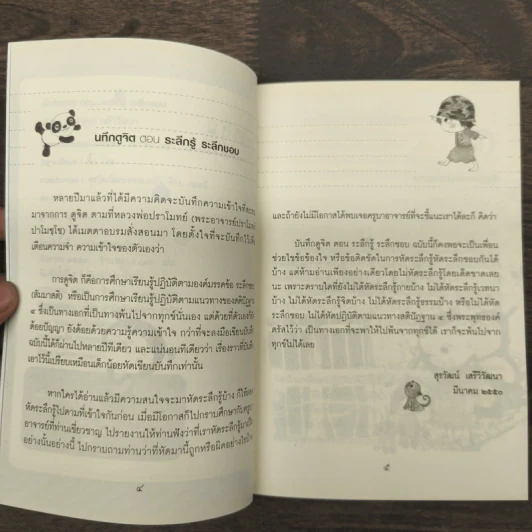 นทึกดูจิต ตอน ระลึกรู้ ระลึกชอบ
หลายปีมาแล้วที่ได้มีความคิดจะบันทึกความเข้าใจที่
มาจากการ ดูจิต ตามที่หลวงพ่อปราโมทย์ (พระอาจารย์ปราโมทย์
ปาโมชฺโช) ได้เมตตาอบรมสั่งสอนมา โดยตั้งใจที่จะบันทึกไว้
เตือนความจำ ความเข้าใจของตัวเองว่า
การดูจิต ก็คือการศึกษาเรียนรู้ปฏิบัติตามองค์มรรคข้อ ระลึกชอบ
(สัมมาสติ) หรือเป็นการศึกษาเรียนรู้ปฏิบัติตามแนวทางของสติปัฏฐาน
๔ ซึ่งเป็นทางเอกที่เป็นทางพ้นไปจากทุกข์นั่นเอง แต่ด้วยที่ตัวเองยัง
ด้อยปัญญา ยังด้อยด้วยความรู้ความเข้าใจ กว่าที่จะลงมือเขียนบันทึก
ฉบับนี้ได้ก็ผ่านมาหลายปีทีเดียว และแน่นอนทีเดียวว่า เรื่องราวที่บันทึก
เอาไว้นี้เปรียบเหมือนเด็กน้อยหัดเขียนบันทึกเท่านั้น
หากใครได้อ่านแล้วมีความสนใจจะมาหัดระลึกรู้บ้าง ก็ให้
หัดระลึกรู้ไปตามที่เข้าใจกันก่อน เมื่อมีโอกาสก็ไปกราบศึกษากับครูบา
อาจารย์ที่ท่านเชี่ยวชาญ ไปรายงานให้ท่านฟังว่าที่เราหัดระลึกรู้มาเป็น
อย่างนั้นอย่างนี้ ไปกราบถามท่านว่าที่หัดมานี้ถูกหรือผิดอย่างไรบ้าง
๔
และถ้ายังไม่มีโอกาสได้พบเจอครูบาอาจารย์ที่จะชี้แนะเราได้ละก็ คิดว่า
บันทึกดูจิต ตอน ระลึกรู้ ระลึกชอบ ฉบับนี้ก็คงพอจะเป็นเพื่อน
ช่วยไขข้อข้องใจ หรือข้อติดขัดในการหัดระลึกรู้หัดระลึกชอบกันได้
บ้าง แต่ห้ามอ่านเพียงอย่างเดียวโดยไม่หัดระลึกรู้โดยเด็ดขาดเลย
นะ เพราะตราบใดที่ยังไม่ได้หัดระลึกรู้กายบ้าง ไม่ได้หัดระลึกรู้เวทนา
บ้าง ไม่ได้หัดระลึกรู้จิตบ้าง ไม่ได้หัดระลึกรู้ธรรมบ้าง หรือไม่ได้หัด
ระลึกชอบ ไม่ได้หัดปฏิบัติตามแนวทางสติปัฏฐาน ๔ ซึ่งพระพุทธองค์
ตรัสไว้ว่า เป็นทางเอกที่จะพาให้ไปพ้นจากทุกข์ได้ เราก็จะพ้นไปจาก
ทุกข์ไม่ได้เลย
สุรวัฒน์ เสรีวิวัฒนา
มีนาคม ๒๕๕๐
๕